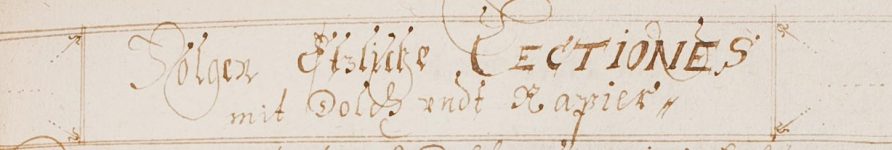 Volgen Etzliche LECTIONES
mit Dolch vndt Rapier